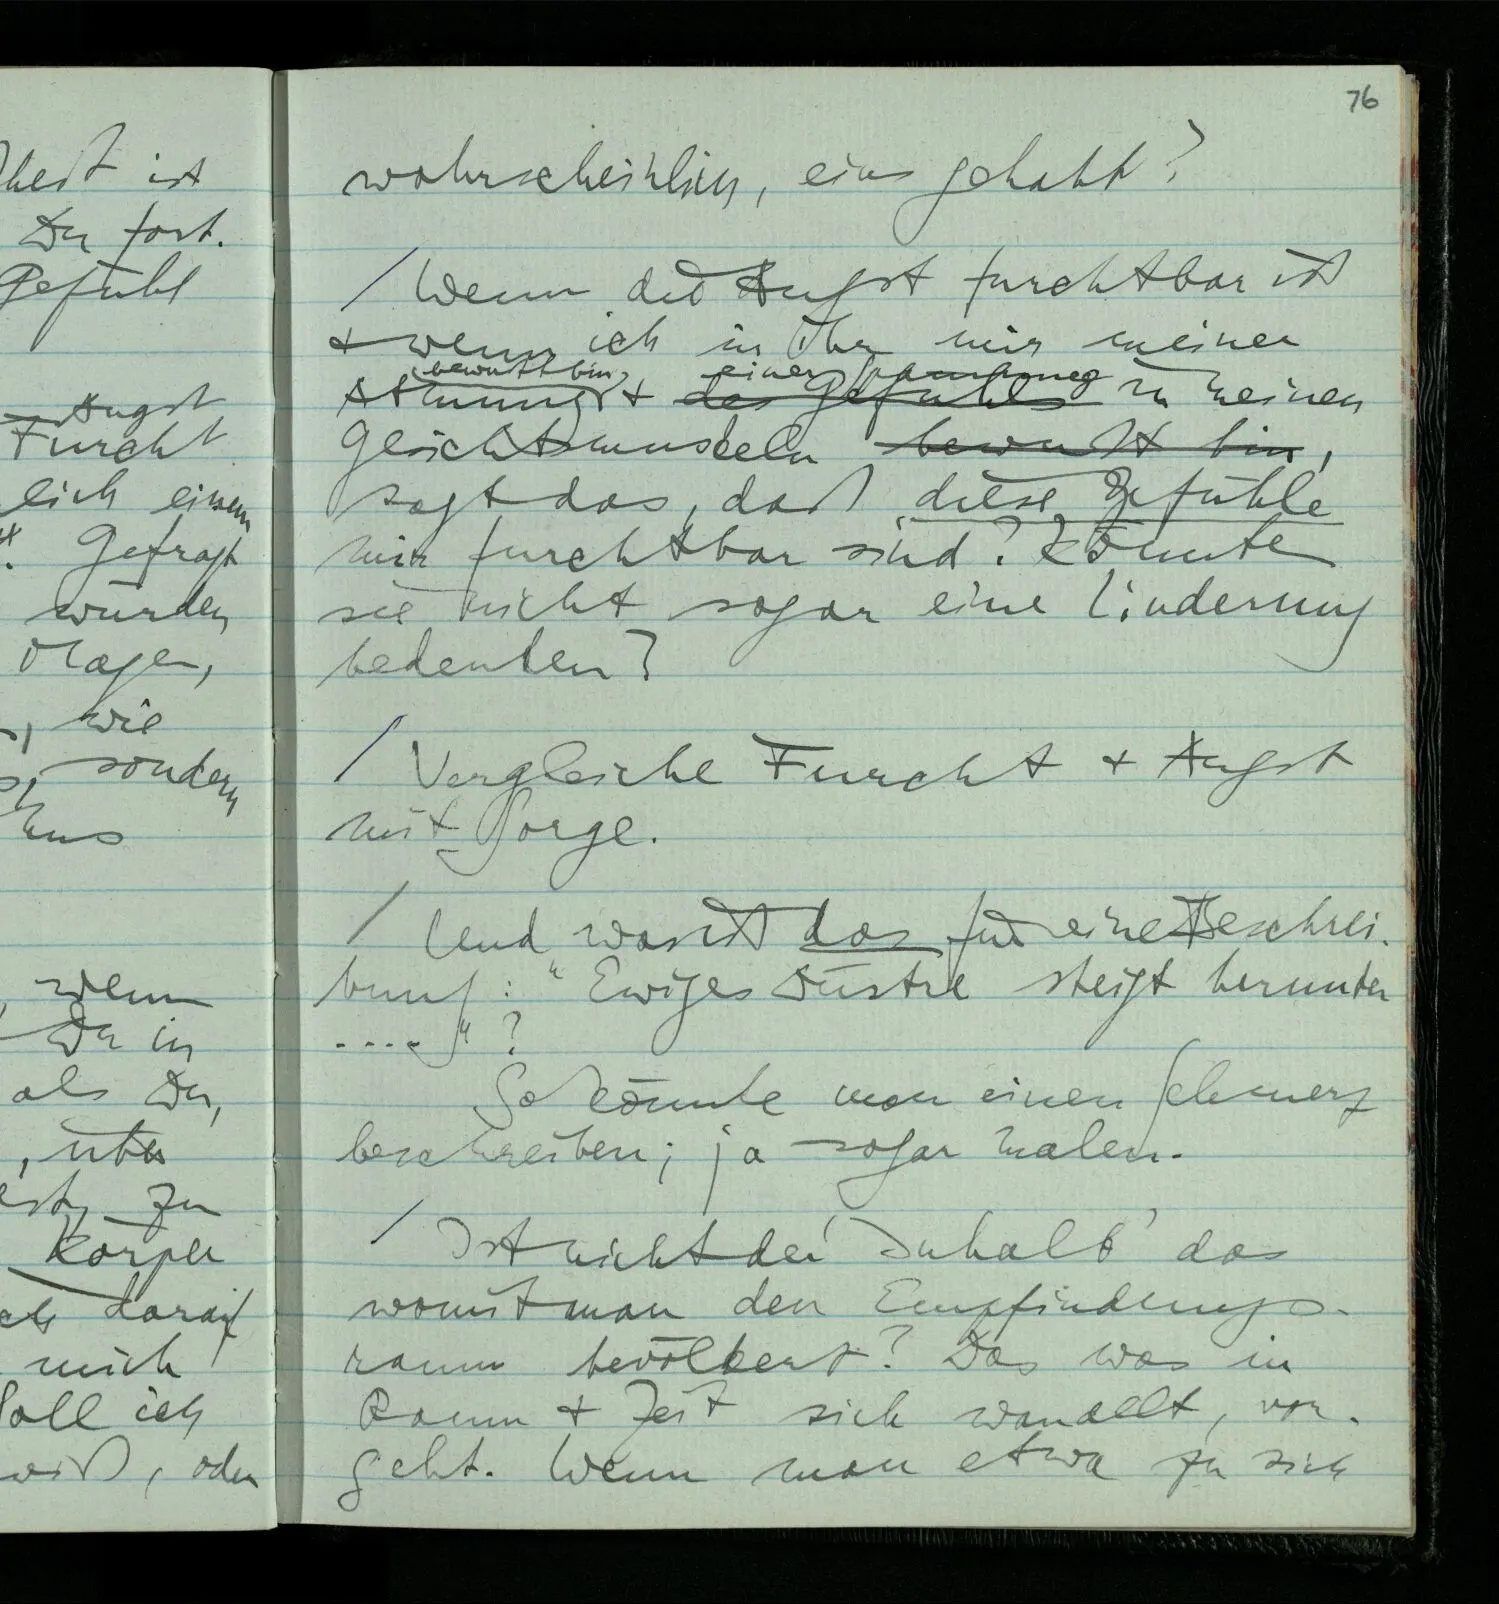 76
heit ist
Du fort.
Gefühl
Angst
Furcht
lich einem
Gefragt
würden
Magen,
, wie
, sondern
, wenn
Du in
als Du,
, über
zu
Körper
darauf
mich
Soll ich
, oder
wahrscheinlich, eins gehabt?
/ Wenn die Angst furchtbar ist
+ wenn ich in ihr mir meiner
bewußt bin, einer Spannung
Atmung + des Gefühls in meinen
Gesichtsmuskeln bewußt bin,
sagt das, daß diese Gefühle
mir furchtbar sind? Könnten
sie nicht sogar eine Linderung
bedeuten?
/ Vergleiche Furcht + Angst
mit Sorge.
/ Und was ist das für eine Beschrei-
bung: "Ewiges Düstre steigt herunter
...." ?
So könnte man einen Schmerz
beschreiben; ja sogar malen.
/ Ist nicht der 'Inhalt' das
womit man den Empfindungs-
raum bevölkert? Das was in
Raum + Zeit sich wandelt, vor-
geht. Wenn man etwa zu sich